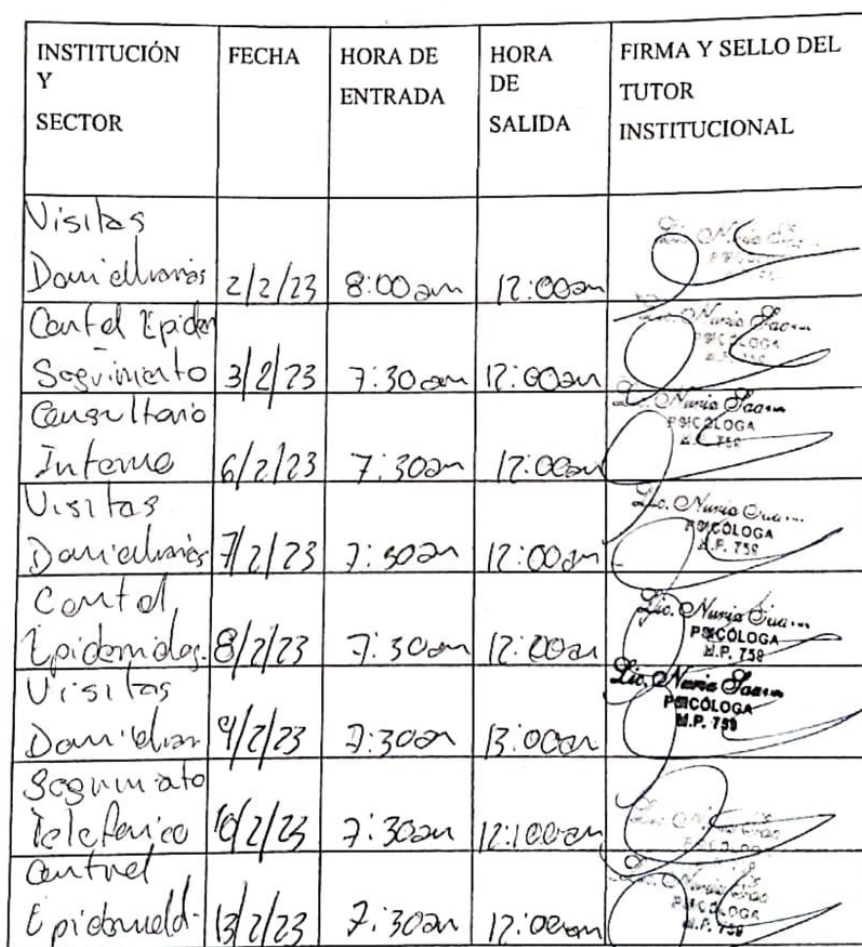 INSTITUCIÓN Y SECTOR FECHA HORA DE ENTRADA HORA DE SALIDA FIRMA Y SELLO DEL TUTOR INSTITUCIONAL
Visitas
Domiciliarias 2/2/23 8:00 am 12:00am
Control Epidem
Seguimiento 3/2/23 7:30 am 12:00am
Lic. Nuria
PSICOLOGA
Consultorio
Interno 6/2/23 7:30am 12:00am
Lic. Nuria
PSICOLOGA
M.P. 759
Visitas
Domiciliarias 7/2/23 7:30am 12:00am
Lic. Nuria
PSICOLOGA
M.P. 759
Control
Epidemiolog. 8/2/23 7:30am 12:00am
Lic. Nuria
PSICOLOGA
M.P. 759
Visitas
Domiciliar 9/2/23 7:30am 13:00am
Lic. Nuria
PSICOLOGA
M.P. 759
Seguimiato
Telefonico 10/2/23 7:30am 12:100am
Control
Epidemiol. 13/2/23 7:30am 12:00am